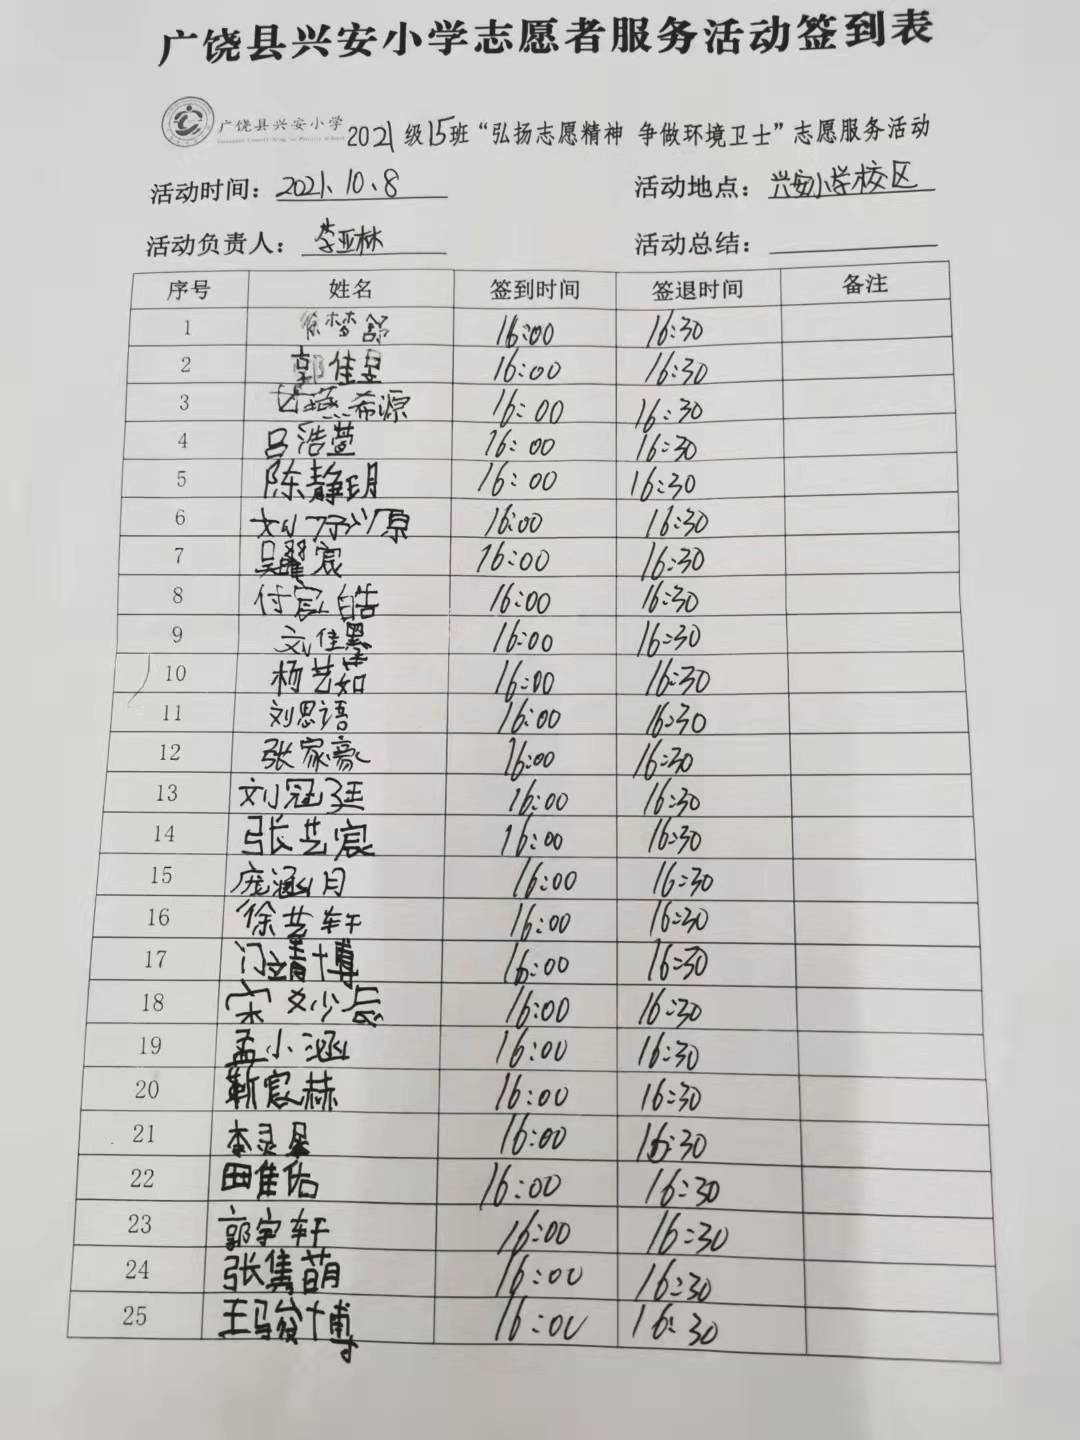 广饶县兴安小学志愿者服务活动签到表
广饶县兴安小学 2021级15班“弘扬志愿精神 争做环境卫士”志愿服务活动
活动时间：2021、10、8 活动地点：兴安小学校区
活动负责人：李亚林 活动总结：
序号 姓名 签到时间 签退时间 备注
1 徐梦舒 16:00 16:30
2 郭佳昱 16:00 16:30
3 希源 16:00 16:30
4 吕浩萱 16:00 16:30
5 陈静玥 16:00 16:30
6 刘 源 16:00 16:30
7 吴耀宸 16:00 16:30
8 付宸皓 16:00 16:30
9 刘佳墨 16:00 16:30
10 杨艺茹 16:00 16:30
11 刘思语 16:00 16:30
12 张家豪 16:00 16:30
13 刘冠廷 16:00 16:30
14 张艺宸 16:00 16:30
15 庞涵月 16:00 16:30
16 徐艺轩 16:00 16:30
17 门靖博 16:00 16:30
18 宋 辰 16:00 16:30
19 孟小涵 16:00 16:30
20 靳宸赫 16:00 16:30
21 李灵 16:00 16:30
22 田佳佑 16:00 16:30
23 郭宇轩 16:00 16:30
24 张隽萌 16:00 16:30
25 王骏博 16:00 16:30